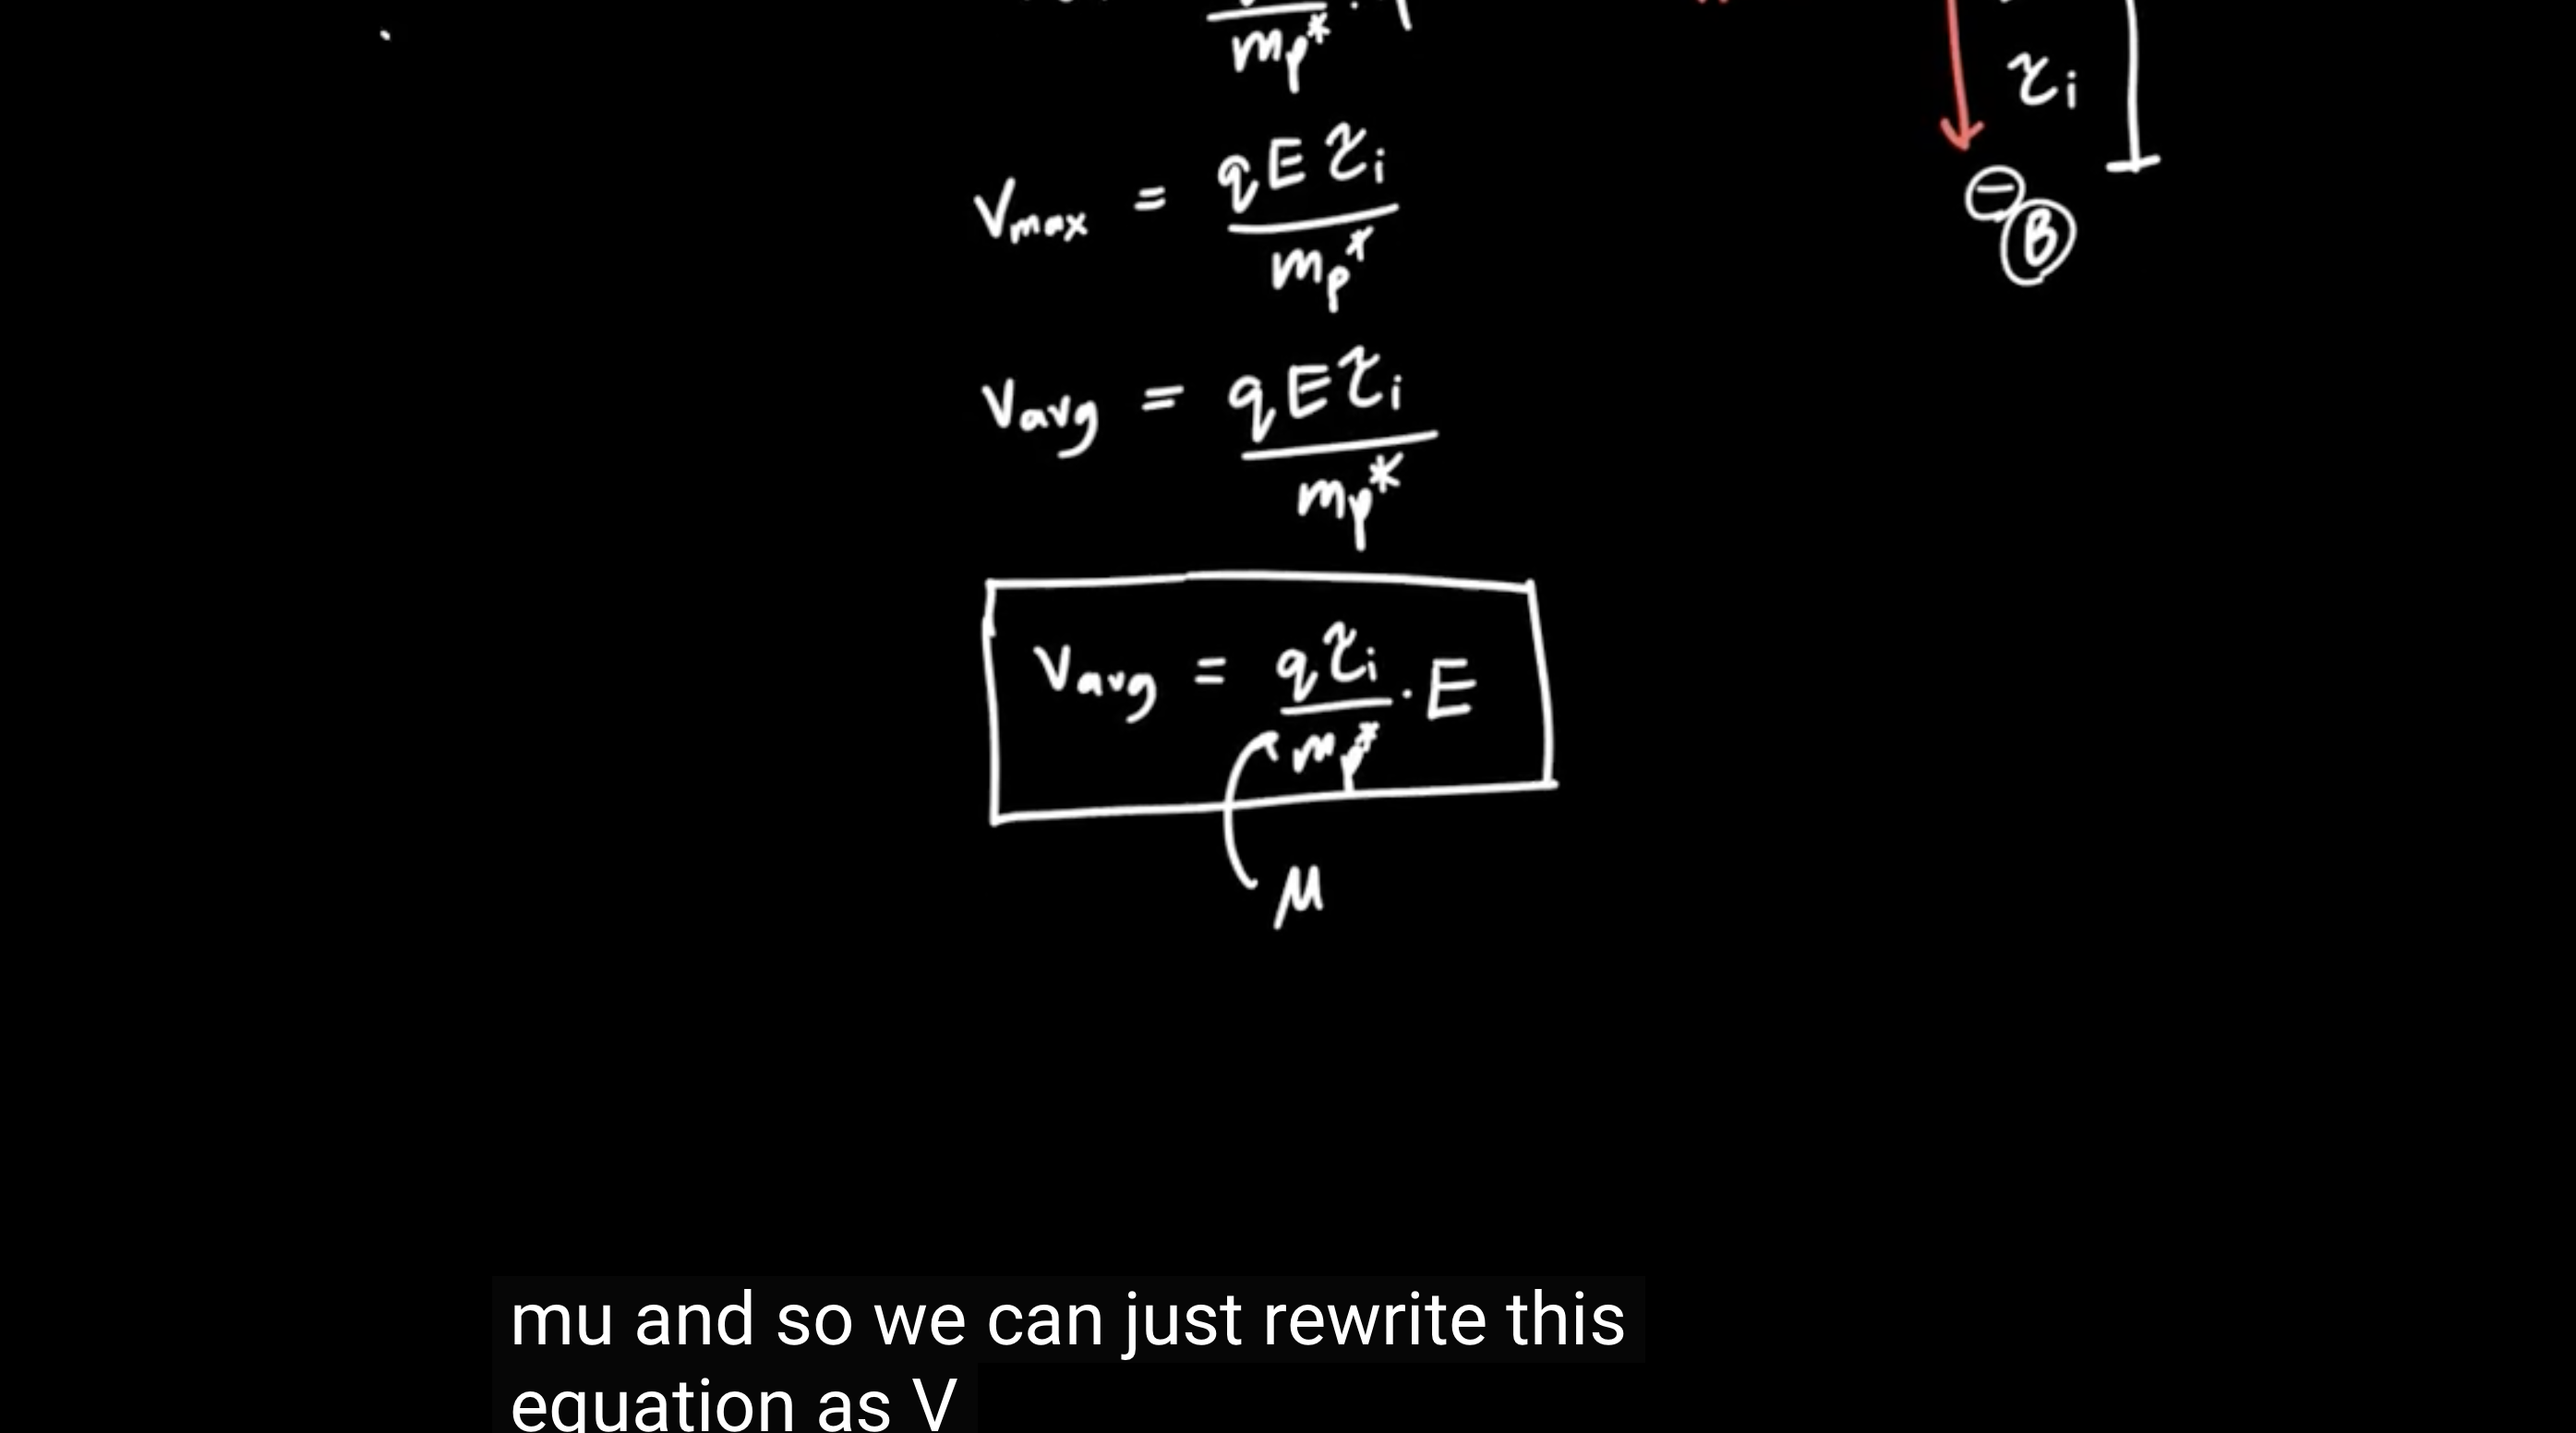 mp*
τi
Vmax = qEτi / mp*
⊖
B
Vavg = qEτi / mp*
Vavg = qτi / mp* · E
μ
mu and so we can just rewrite this
equation as V